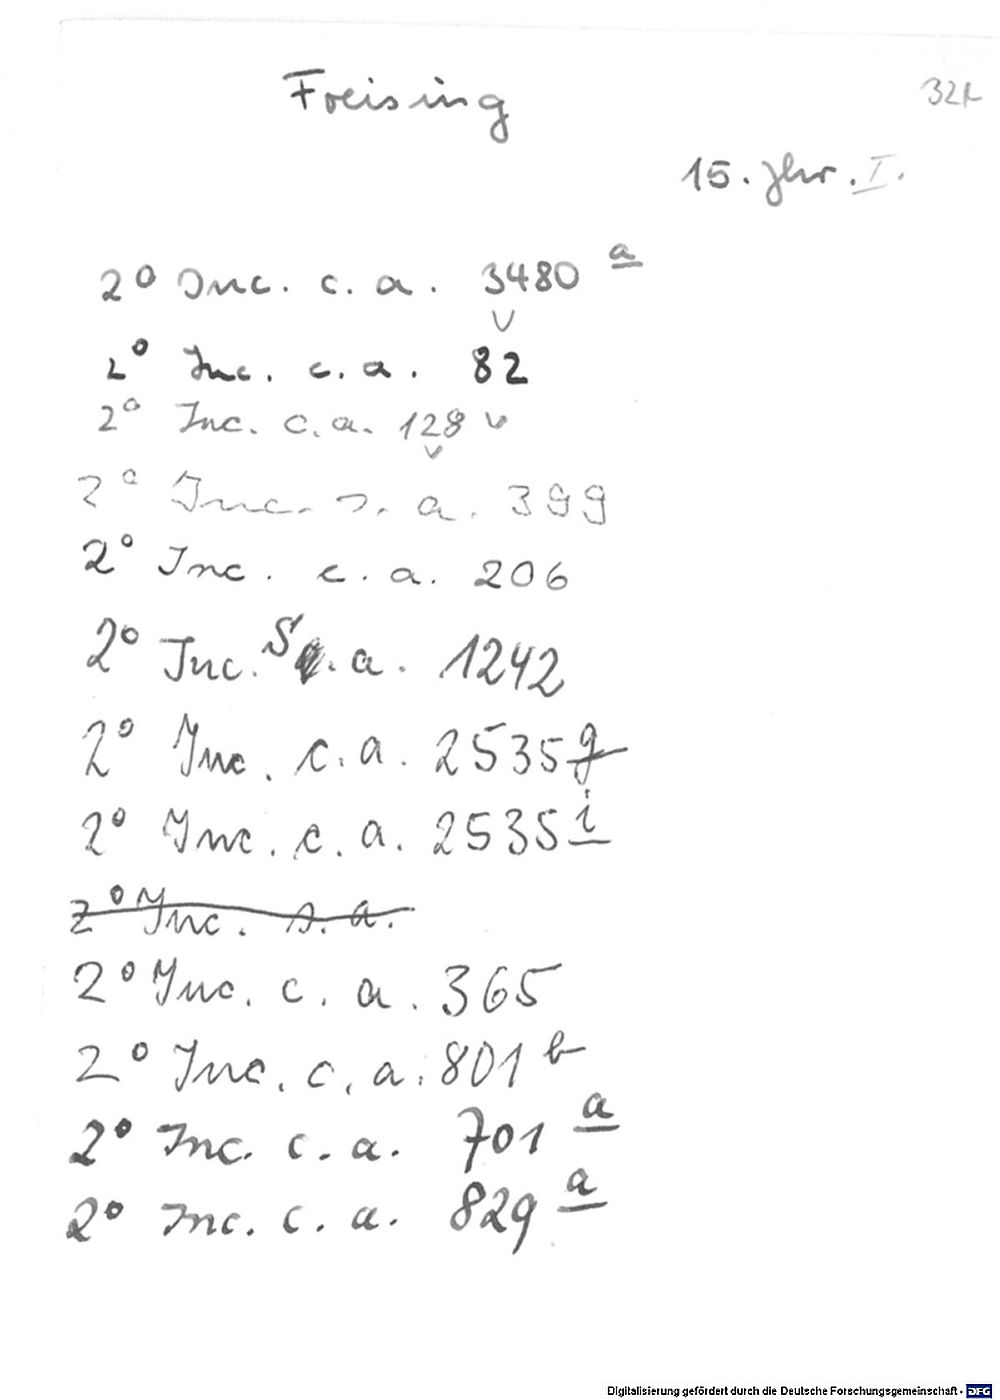 Freising
32r
15. Jhr. I.
2° Inc. c. a. 3480 a
v
2° Inc. c. a. 82
2° Inc. c. a. 128 v
v
2° Inc. s. a. 399
2° Inc. c. a. 206
2° Inc. S. a. 1242
2° Inc. c. a. 2535 g
2° Inc. c. a. 2535 i
2° Inc. s. a.
2° Inc. c. a. 365
2° Inc. c. a. 801 b
2° Inc. c. a. 701 a
2° Inc. c. a. 829 a
Digitalisierung gefördert durch die Deutsche Forschungsgemeinschaft - DFG